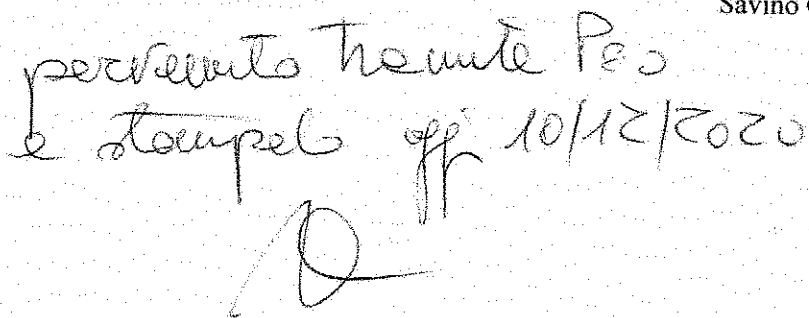 Savino
pervenuto tramite Peo
e stampato oggi 10/12/2020